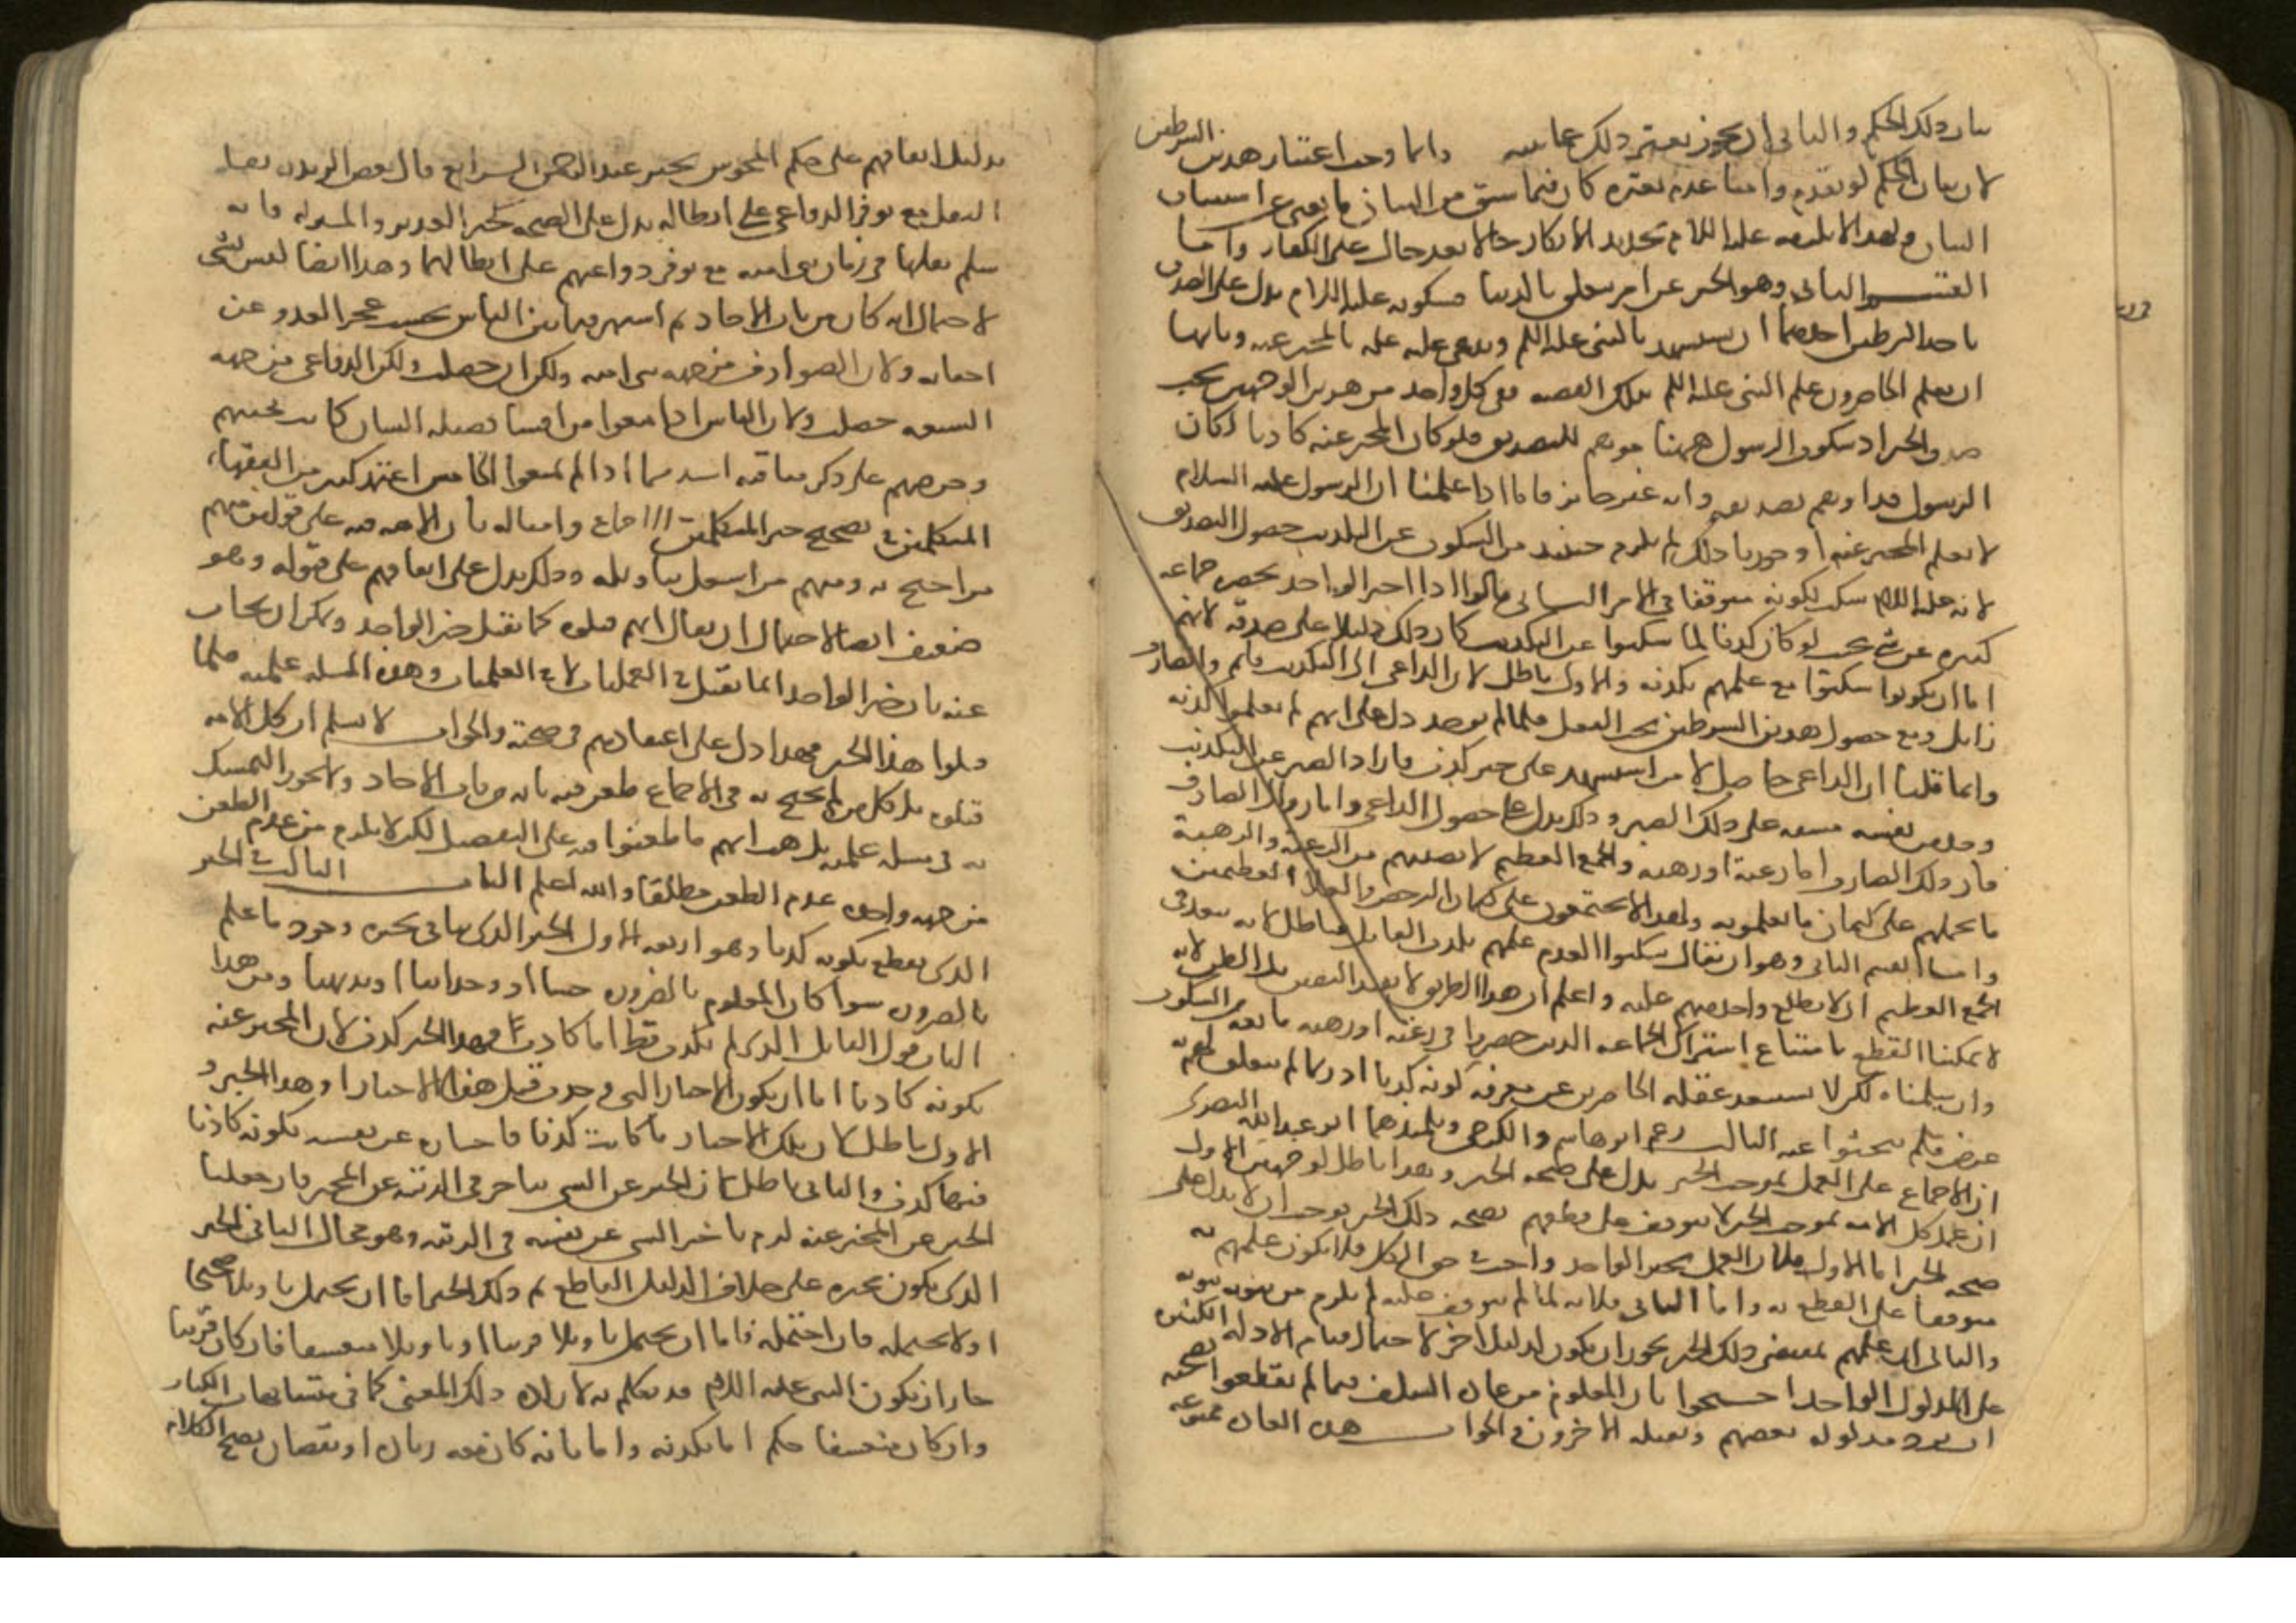 بيان ذلك الحكم والثاني ان يجوز تغير ذلك عما بينه وانما وجب اعتبار هذين الشرطين
لان بيان الحكم لو تقدم وامنا عدم تغيره كان فيما سبق من البيان ما يغني عن استيناف
البيان ولهذا لا يلزمه عليه السلام تجديد الانكار حالا بعد حال على الكفار واما
القسم الثاني وهو الخبر عن امر يتعلق بالدنيا فسكوته عليه السلام يدل على الصدق
باحد الشرطين احدهما ان يستشهد بالنبي عليه السلم ويدعي عليه علمه بالمخبر عنه وثانيها
ان يعلم الحاضرون علم النبي عليه السلم بتلك القصه ففي كل واحد من هذين الوجهين يجب
صدق الخبر اذ سكوت الرسول ههنا موهم للتصديق فلو كان المخبر عنه كاذبا لكان
الرسول قد اوهم تصديقه وانه غير جائز فاما اذا علمنا ان الرسول عليه السلام
لا يعلم المخبر عنه او جوزنا ذلك لم يلزم حينئذ من السكوت عن التكذيب حصول التصديق
لانه عليه السلام سكت لكونه متوقفا في الامر الثاني قالوا اذا اخبر الواحد بحضرة جماعه
كثيره عن شي بحيث لو كان كذبا لما سكتوا عن التكذيب كان ذلك دليلا على صدقه لانهم
اما ان يكونوا سكتوا مع علمهم بكذبه والاول باطل لان الداعي الى التكذيب قايم والصارف
زايل ومع حصول هذين الشرطين يجب الفعل فلما لم يوجد دل على انهم لم يعلموا كذبه
وانما قلنا ان الداعي حاصل لان من استشهد على خبر كذب فاراد الصبر عن التكذيب
وجد من نفسه مشقه على ذلك الصبر وذلك يدل على حصول الداعي واما زوال الصارف
فلان ذلك الصارف اما رغبة او رهبه والجمع العظيم لا يعمهم من الرغبة والرهبة
ما يحملهم على كتمان ما يعلمونه ولهذا لا يجتمعون على كتمان الرخص والغلاء العظيمين
واما القسم الثاني وهو ان يقال سكتوا لعدم علمهم بكذب القايل فباطل لانه يبعد في
الجمع العظيم ان لا يطلع واحد منهم عليه واعلم ان هذا الطريق لا يفيد اليقين بل الظن لانه
لا يمكننا القطع بامتناع اشتراك الجماعه الذين حضروا في رغبة او رهبه مانعه من السكوت
وان سلمناه لكن لا نستبعد غفله الحاضرين عن معرفه كونه كذبا اذ ربما لم يتعلق لهم به
غرض فلم يبحثوا عنه الثالث زعم ابو هاشم والكرخي وتلميذهما ابو عبد الله البصري
ان الاجماع على العمل بموجب الخبر يدل على صحه الخبر وهذا باطل لوجهين الاول
ان عمل كل الامه بموجب الخبر لا يتوقف على قطعهم بصحه ذلك الخبر فوجب ان لا يدل على
صحه الخبر اما الاول فلان العمل بخبر الواحد واجب في حق الكل فلا يكون علمهم به
متوقفا على القطع به واما الثاني فلانه لما لم يتوقف عليه لم يلزم من ثبوته ثبوته
والثاني ان علمهم بمقتضى ذلك الخبر يجوز ان يكون لدليل اخر لاحتمال قيام الادله الكثيره
على المدلول الواحد احتجوا بان المعلوم من عادة السلف فيما لم يقطعوا بصحته
ان يرد مدلوله بعضهم ويقبله الاخرون والجواب هذه العادة ممنوعه
بدليل اتفاقهم على حكم المجوس بخبر عبد الرحمن الرابع قال بعض الزيديه بقاء
النقل مع توفر الدواعي على ابطاله يدل على الصحه كخبر الغدير والمنزله فانه
سلم نقلها في زمان بني اميه مع توفر دواعيهم على ابطالهما وهذا ايضا ليس بشي
لاحتمال انه كان من باب الاحاد ثم اشتهر فيما بين الناس بحيث عجز العدو عن
اخفائه ولان الصوارف من جهه بني اميه ولكن ان حصلت ولكن الدواعي من جهه
الشيعه حصلت ولان الناس اذا منعوا من افشا فضيله انسان كانت محبتهم
وحرصهم على ذكر مناقبه اشد مما اذا لم يمنعوا الخامس اعتمد كثير من الفقهاء
المتكلمين في تصحيح خبر المتكلمين الاجماع وامثاله بان الامه فيه على قولين منهم
من احتج به ومنهم من اشتغل بتاويله وذلك يدل على اتفاقهم على قبوله وهو
ضعيف ايضا لاحتمال ان يقال انهم قبلوه كما نقبل خبر الواحد ويمكن ان يجاب
عنه بان خبر الواحد انما يقبل في العمليات لا في العلميات وهذه المسله علميه فلما
قبلوا هذا الخبر فيها دل على اعتقادهم في صحته والجواب لا نسلم ان كل الامه
قبلوه بل كل من لم يحتج به في الاجماع طعن فيه بانه من باب الاحاد ولا يجوز التمسك
به في مسله علميه بل هب انهم ما طعنوا فيه على التفصيل لكن لا يلزم من عدم الطعن
من جهه واحده عدم الطعن مطلقا والله اعلم الباب الثالث في الخبر
الذي يقطع بكونه كذبا وهو اربعه الاول الخبر الذي ينافي مخبره وجود ما علم
بالضروره سوا كان المعلوم بالضروره حسا او وجدانا او بديهيا ومن هذا
الباب قول القايل الذي لم يكذب قط انا كاذب فهذا الخبر كذب لان المخبر عنه
بكونه كاذبا اما ان يكون الاخبار التي وجدت قبل هذا الاخبار او هذا الخبر و
الاول باطل لان تلك الاخبار ما كانت كذبا فاخباره عن نفسه بكونه كاذبا
فيها كذب والثاني باطل لان الخبر عن الشي يتاخر في الرتبه عن المخبر فان جعلنا
الخبر عين المخبر عنه لزم تاخر الشي عن نفسه في الرتبه وهو محال الثاني الخبر
الذي يكون مخبره على خلاف الدليل القاطع ثم ذلك الخبر اما ان يحتمل تاويلا صحيحا
او لا يحتمله فان احتمله فاما ان يحتمل تاويلا قريبا او تاويلا متعسفا فان كان قريبا
جاز ان يكون النبي عليه السلام قد تكلم به لارادة ذلك المعنى كما في متشابهات الكتاب
وان كان متعسفا حكم اما بكذبه واما بانه كان معه زياده او نقصان يصح الكلام